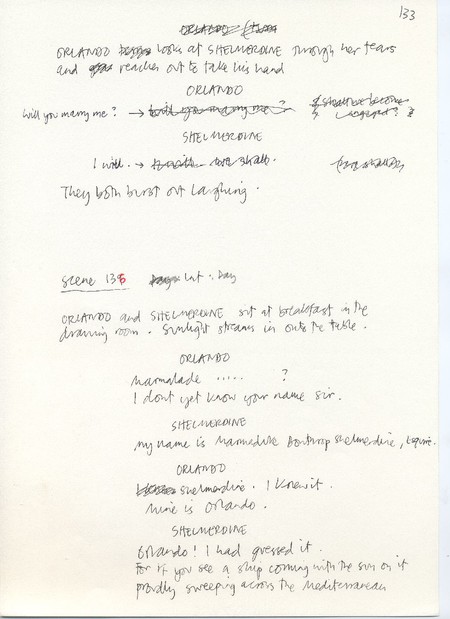 133
ORLANDO looks at SHELMERDINE through her tears
and reaches out to take his hand
ORLANDO
Will you marry me? → will you marry me?
SHELMERDINE
I will. →
They both burst out laughing.
Scene 135 Int: Day
ORLANDO and SHELMERDINE sit at breakfast in the
drawing room. Sunlight streams in onto the table.
ORLANDO
Marmalade ..... ?
I dont yet know your name sir.
SHELMERDINE
My name is Marmaduke Bonthrop Shelmerdine, Esquire.
ORLANDO
Shelmerdine. I knew it.
Mine is Orlando.
SHELMERDINE
Orlando! I had guessed it.
For if you see a ship coming with the sun on it
proudly sweeping across the Mediterranean